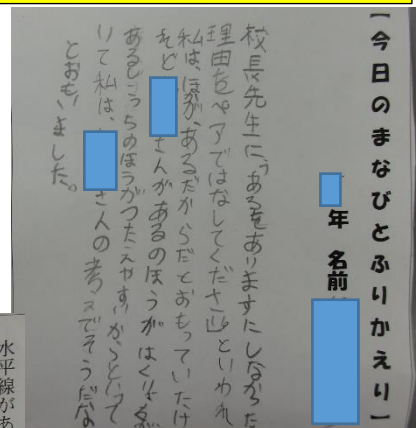 【今日のまなびとふりかえり】
年 名前
校長先生に、「あるをありますにしなかった
理由をペアではなしてください」といわれ
私は、ほかが、あるだからだとおもっていたけ
れど さんがあるのほうがはくりょくが
あるしこっちのほうがつたえやすいからといって
いて私は、 さんの考えでそうだな
とおもいました。
水平線があ